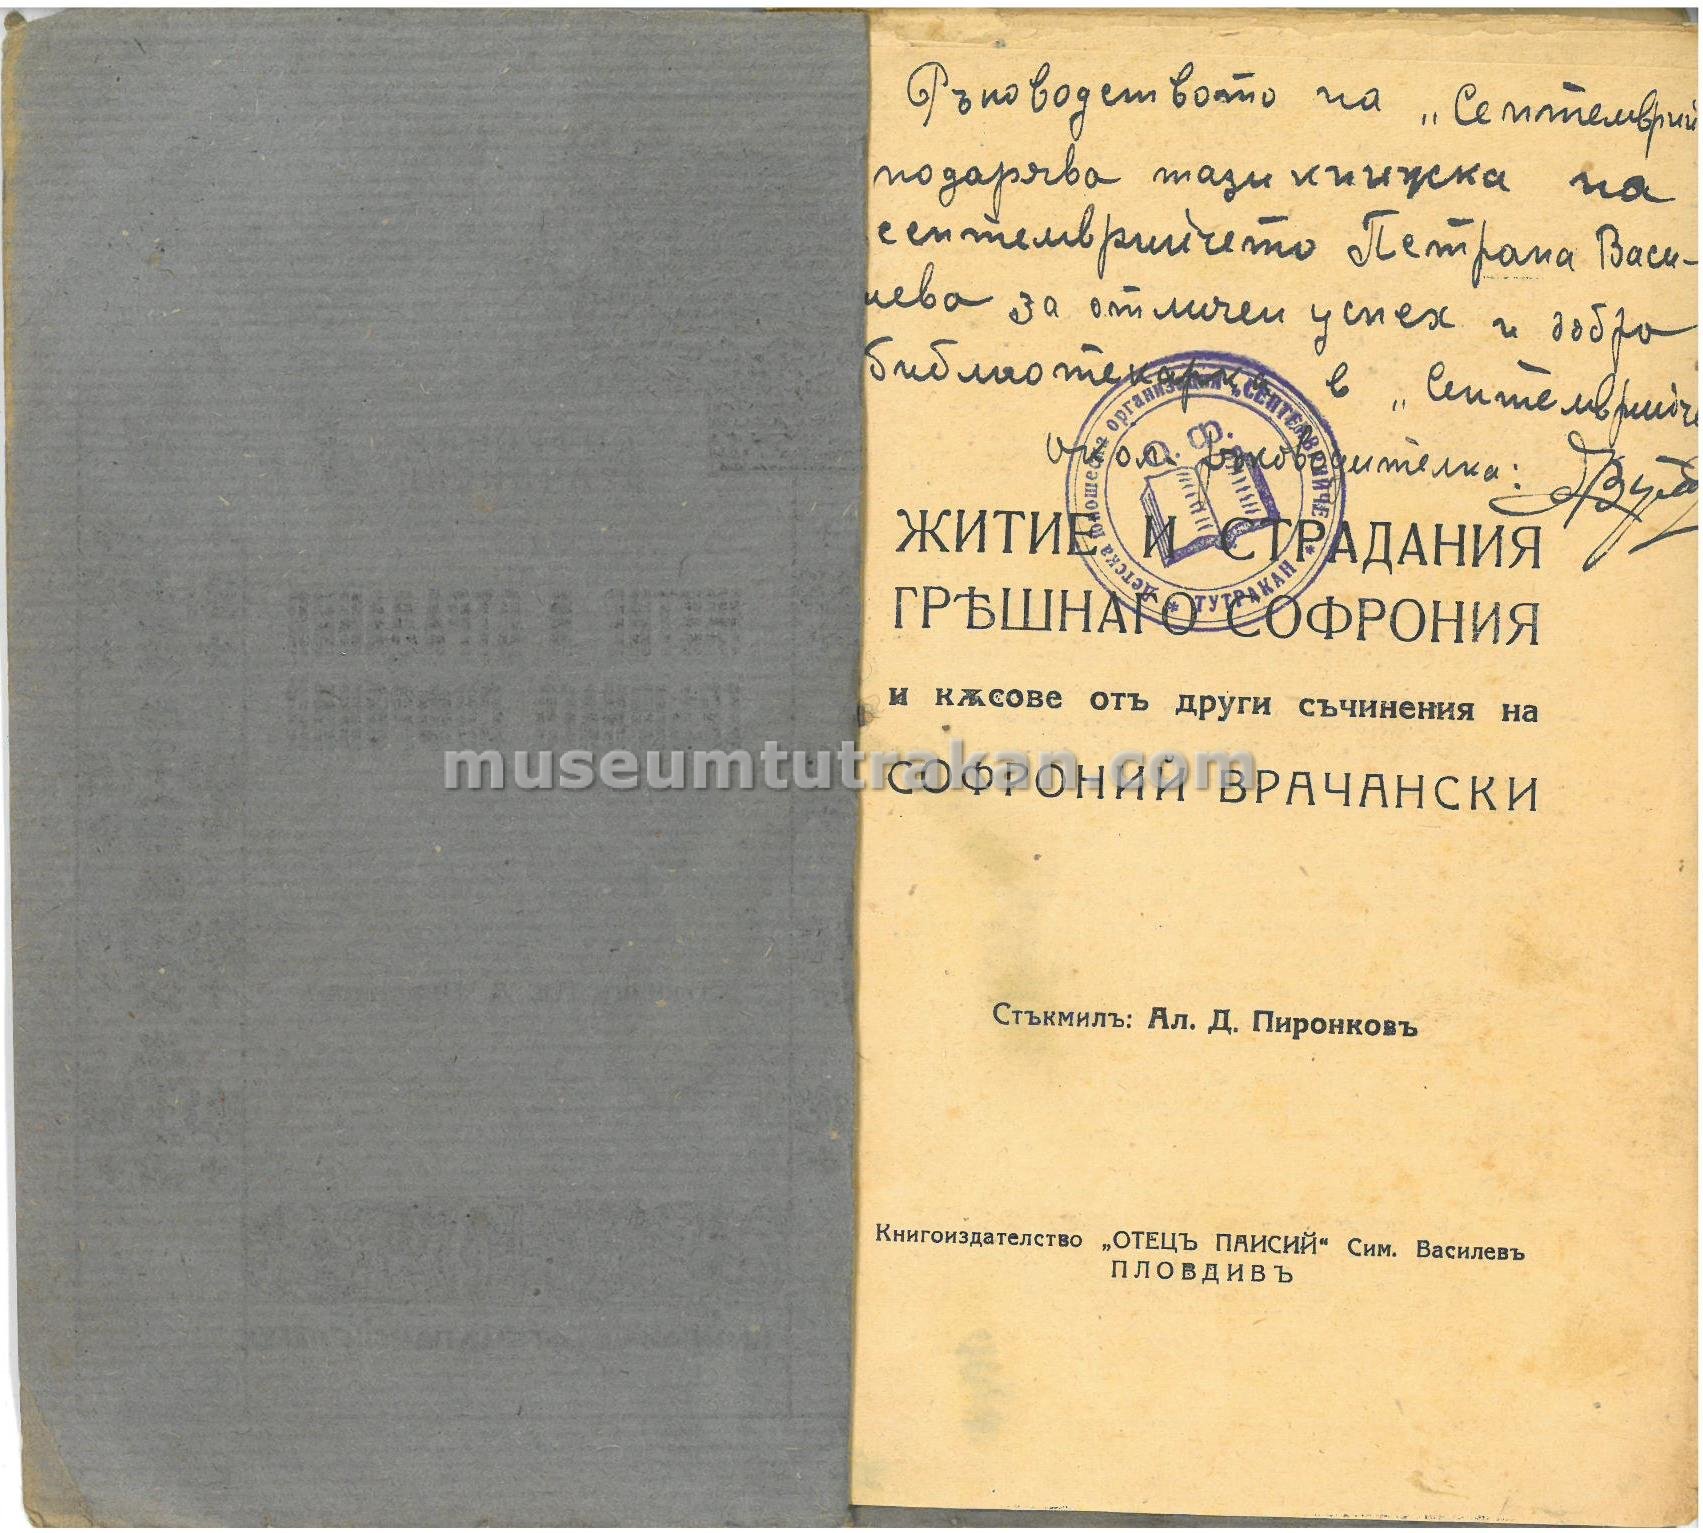 Ръководството на „Септемврий
подарява тази книжка на
септемврийчето Петрана Васи-
лева за отличен успех и добра
библиотекарка в „Септемврийче
Окол. ръководителка:
Детска юношеска организация „СЕПТЕМВРИЙЧЕ"
О. Ф.
* ТУТРАКАН *
ЖИТИЕ И СТРАДАНИЯ
ГРѢШНАГО СОФРОНИЯ
и кѫсове отъ други съчинения на
museumtutrakan.com
СОФРОНИЙ ВРАЧАНСКИ
Стъкмилъ: Ал. Д. Пиронковъ
Книгоиздателство „ОТЕЦЪ ПАИСИЙ“ Сим. Василевъ
ПЛОВДИВЪ